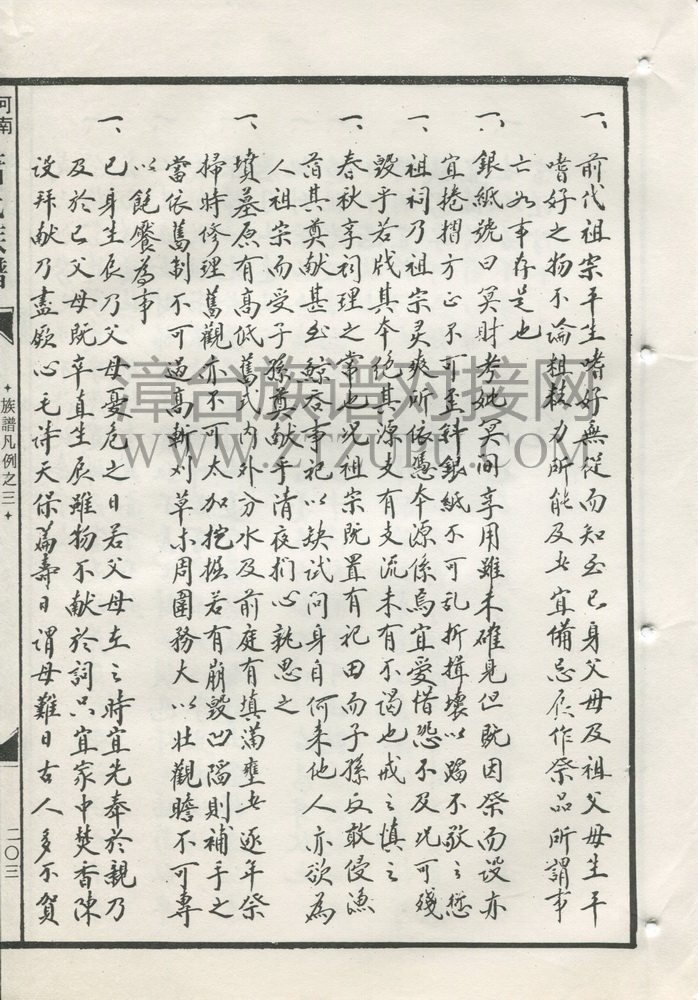 一、前代祖宗平生嗜好無從而知至已身父母及祖父母生平
嗜好之物不論粗糕力所能及者宜備忌辰作祭品所謂事
亡如事存是也
一、銀紙號曰冥財考妣冥間享用雖未確見但既因祭而設亦
宜捲摺方正不可歪斜銀紙不可乱折揖壞以蹈不敬之愆
一、祖祠乃祖宗灵爽所依憑本源係焉宜愛惜恐不及况可殘
毀乎若戕其本絕其源支有支流未有不谒也戒之慎之
一、春秋享祠理之常也况祖宗既置有祀田而子孫反敢侵漁
蒩其奠献甚至鯨吞事祀以缺試問身自何来他人亦欲為
人祖宗而受子孫奠献乎清夜捫心孰思之
一、墳墓原有高低舊式内外分水及前庭有填滿壅者逐年祭
掃時修理舊觀亦不可太加挖掘若有崩毀凹陷則補平之
當依舊制不可過高斬刈草木周圍務大以壯觀瞻不可專
以飽饜為事
一、已身生辰乃父母憂危之日若父母在之時宜先奉於親乃
及於已父母既卒直生辰雖物不献於祠只宜家中焚香陳
設拜献乃盡厥心毛诗天保篇壽日謂母難日古人多不賀
河南
氏族譜
族譜凡例之三
二〇三
漳台族谱对接网
WWW.ZTZUPU.COM